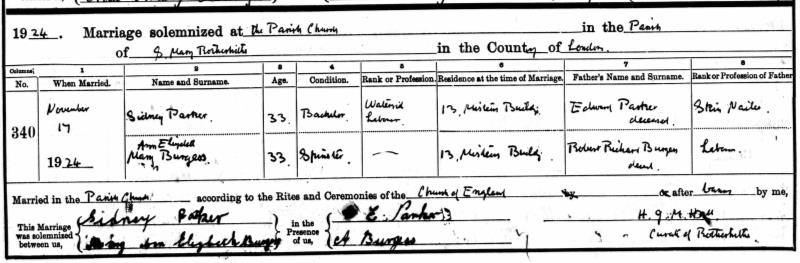 1924. Marriage solemnized at the Parish Church in the Parish
of S. Mary Rotherhithe in the County of London.
Columns: 1 2 3 4 5 6 7 8
No. When Married. Name and Surname. Age. Condition. Rank or Profession. Residence at the time of Marriage. Father's Name and Surname. Rank or Profession of Father
340 November 17 1924
Sidney Parker 33 Bachelor Waterside Labourer 13, Buildgs Edward Parker deceased Skin
Ann Elizabeth
Mary Burgess 33 Spinster — 13, Buildgs Robert Richard Burgess decd. Labourer
Married in the Parish Church according to the Rites and Ceremonies of the Church of England by or after banns by me,
This Marriage was solemnized between us, Sidney Parker in the Presence of us, E. Parker H. G. M. Hall
Mary Ann Elizabeth Burgess A Burgess Curate of Rotherhithe